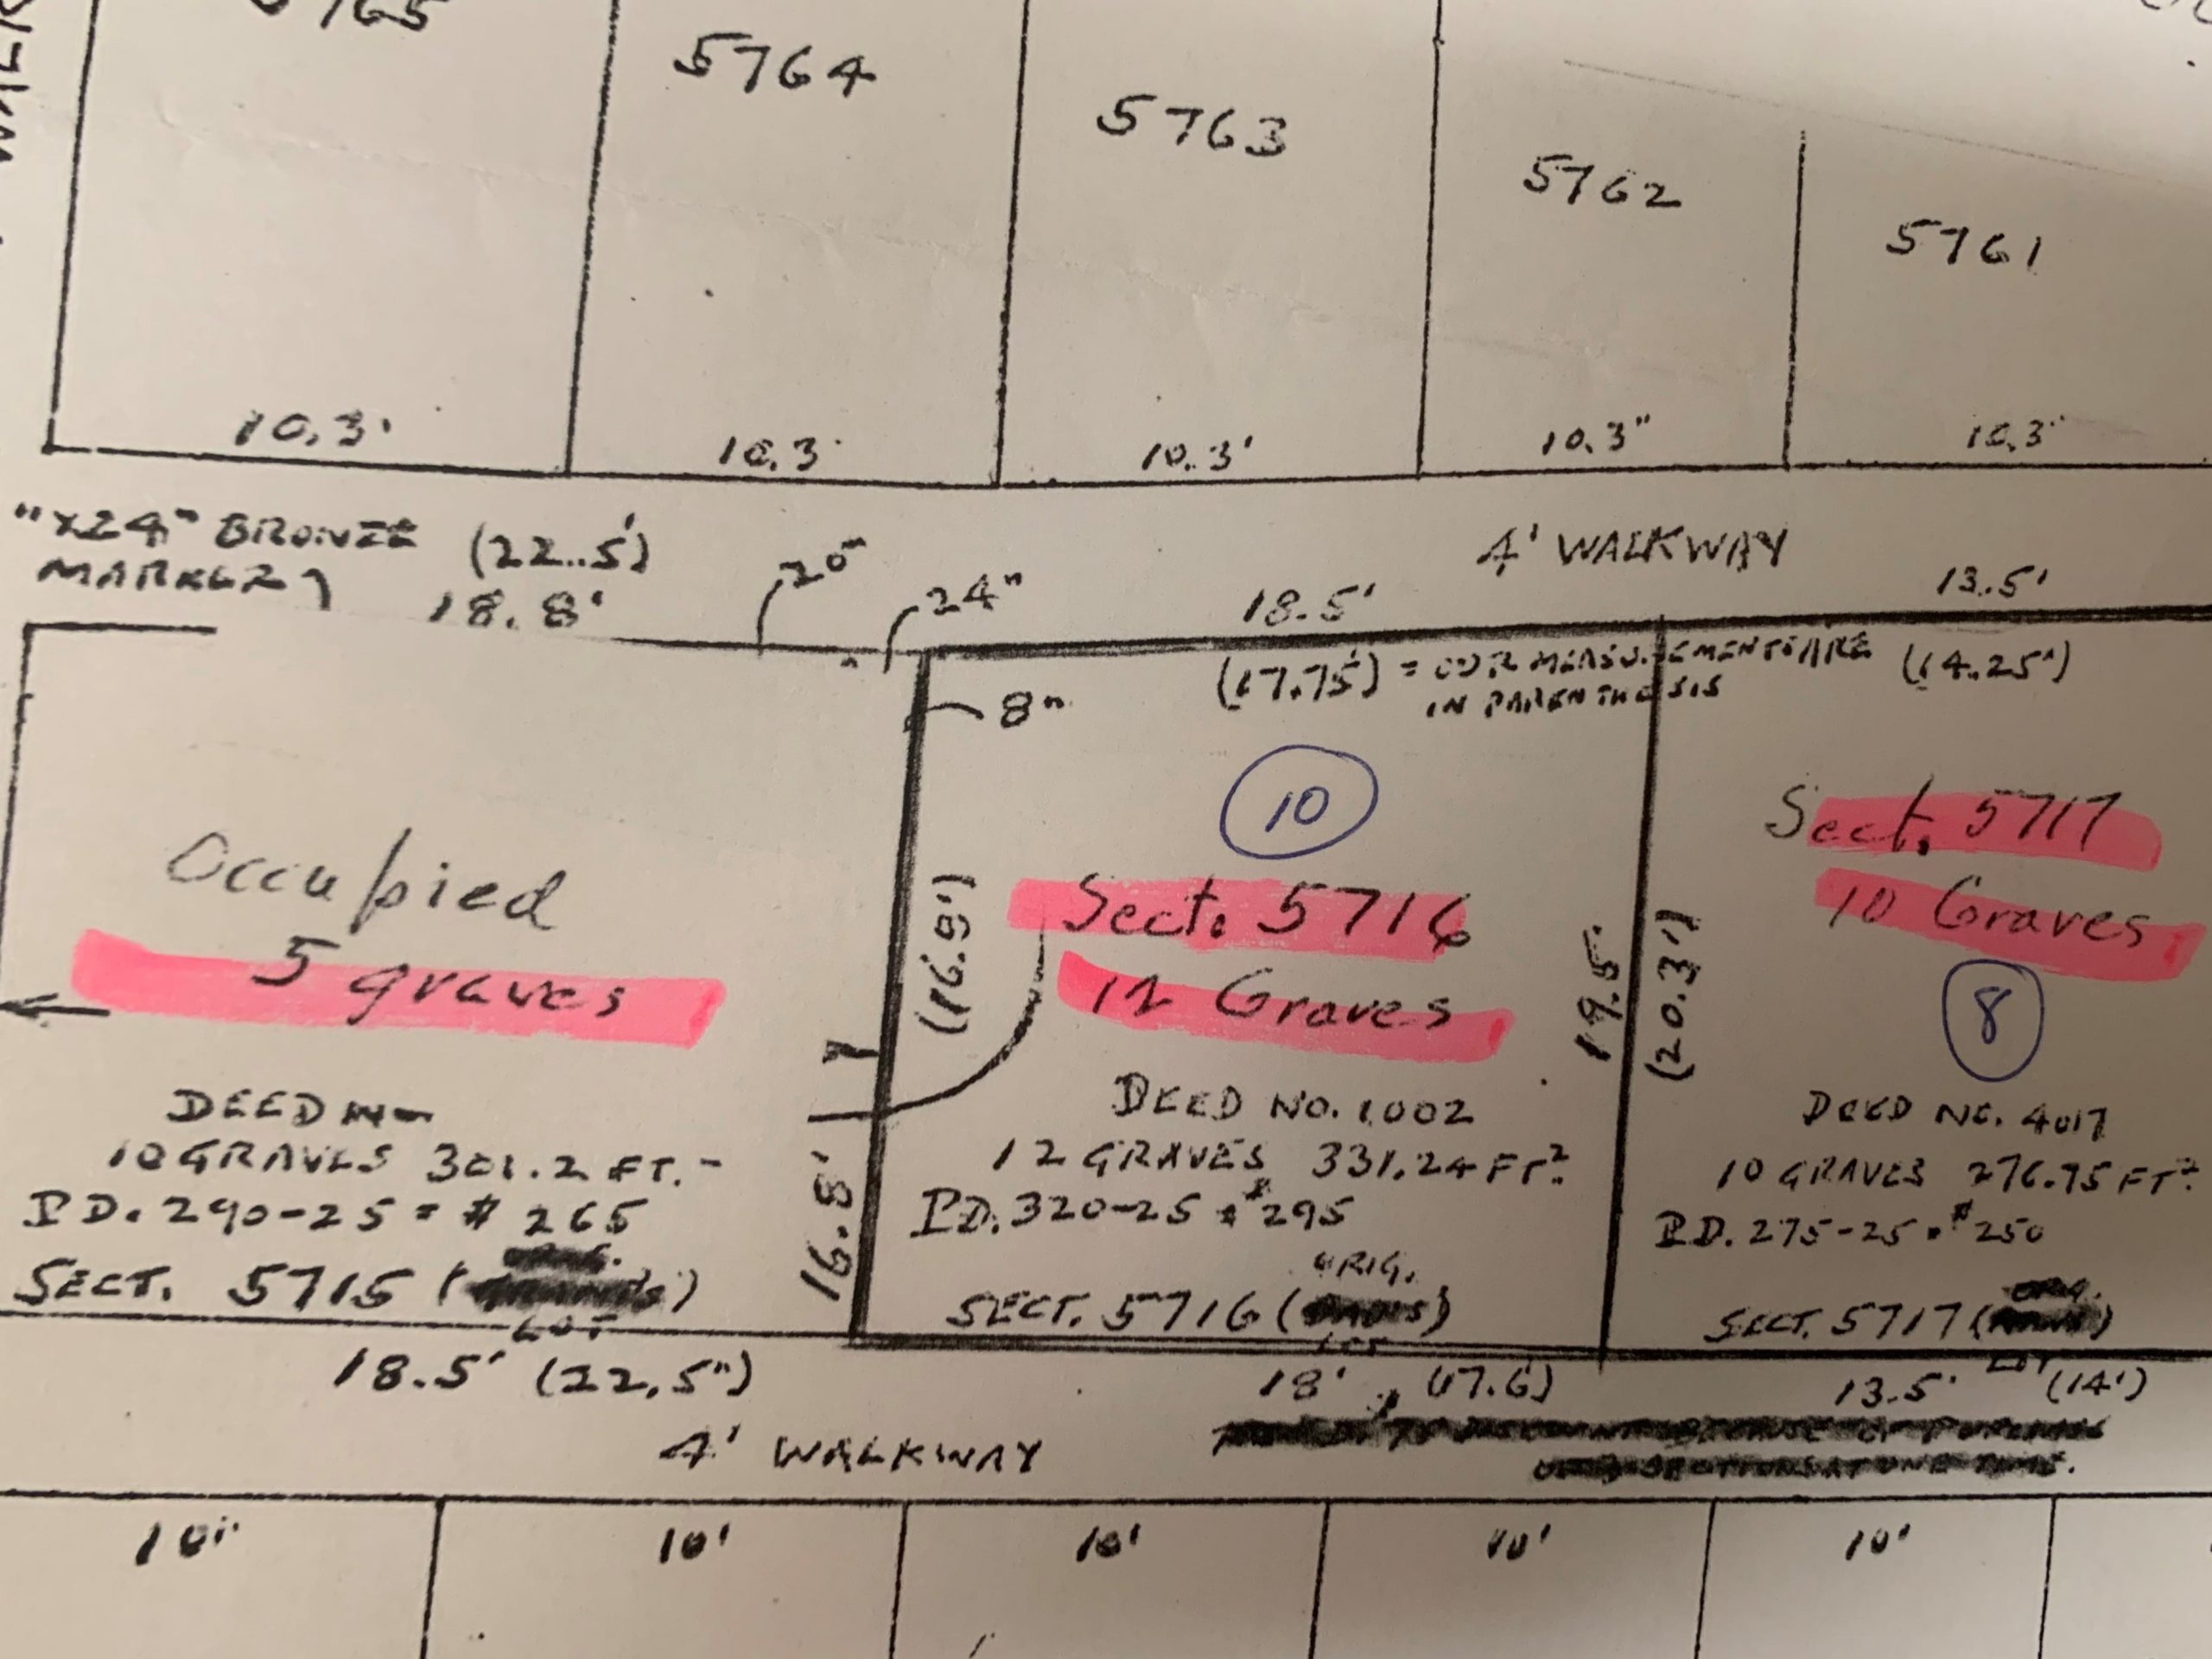 5764
5763
5762
5761
10.3'
10.3'
10.3'
10.3"
10.3"
"X24" BRONZE
MARKER
(22.5')
18.8'
20"
24"
18.5'
4' WALKWAY
13.5'
(17.75') = OUR MEASUREMENTS ARE
IN PARENTHESIS
(14.25')
8"
10
Occupied
5 graves
(16.9')
Sect. 5716
12 Graves
19.5'
(20.3')
Sect. 5717
10 Graves
8
DEED
10 GRAVES 301.2 FT.
PD. 290-25 = $ 265
SECT. 5715 (
LOT
16.8'
DEED NO. 1002
12 GRAVES 331.24 FT²
PD. 320-25 = $295
ORIG.
SECT. 5716 (
LOT
DEED NO. 4017
10 GRAVES 276.75 FT²
PD. 275-25 = $250
ORIG.
SECT. 5717 (
LOT
18.5' (22.5")
18' (17.6)
13.5' (14')
4' WALKWAY
10'
10'
10'
10'
10'